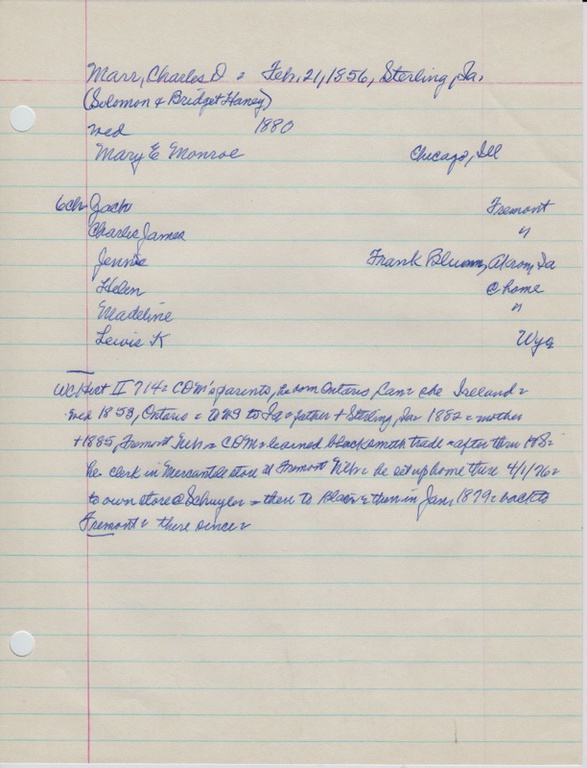 Marr, Charles D = Feb. 21, 1856, Sterling, Ia.
(Solomon & Bridget Haney)
wed 1880
Mary E Monroe Chicago, Ill
6ch Zach Fremont
Charles James "
Jennie Frank Bluem, Akron, Ia
Helen @ home
Madeline "
Lewis K Wyo
WC Hist II 714 = CDM's parents, he born Ontario, Can = she Ireland =
wed 1853, Ontario = to US to Ia = father + Sterling, Ia = 1882 = mother
+ 1885, Fremont Neb = CDM = learned blacksmith trade = after then
he clerk in Mercantile store at Fremont Neb = he set up home there 4/1/76 =
to own store @ Schuyler = then to Blair & then in Jan, 1879 = back to
Fremont = there since =